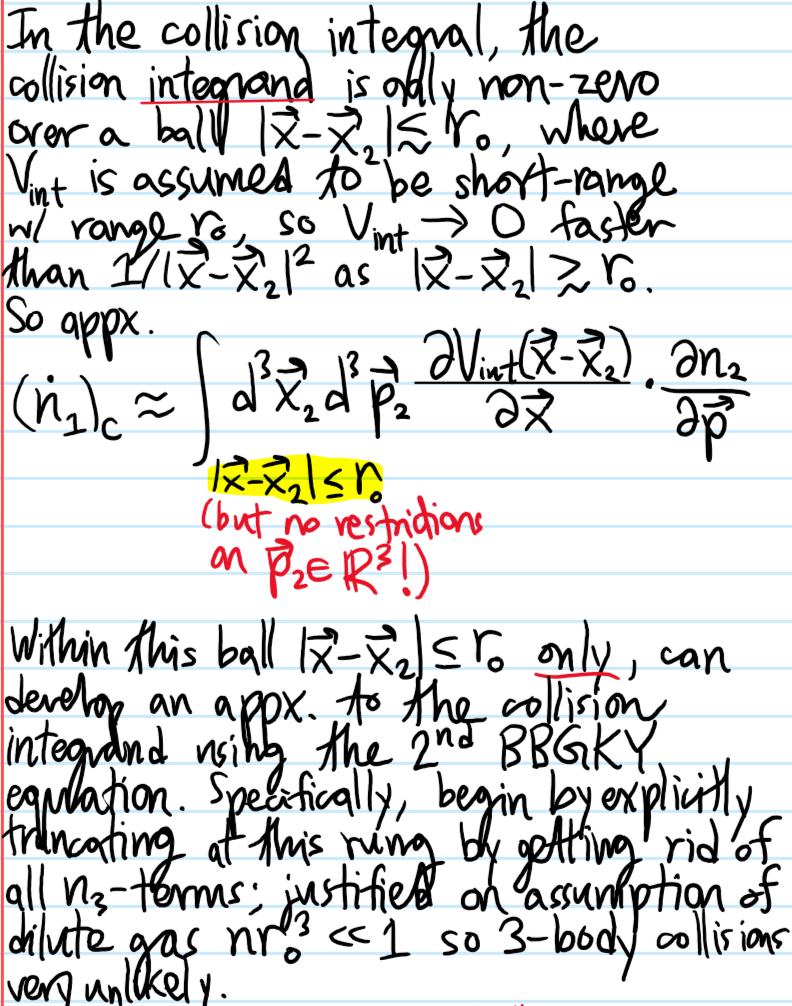 In the collision integral, the
collision integrand is only non-zero
over a ball |x⃗-x⃗₂|≲r₀, where
V_int is assumed to be short-range
w/ range r₀, so V_int → 0 faster
than 1/|x⃗-x⃗₂|² as |x⃗-x⃗₂| ≳ r₀.
So appx.
(ṅ₁)_c ≈ ∫_{|x⃗-x⃗₂|≤r₀} d³x⃗₂ d³p⃗₂ ∂V_int(x⃗-x⃗₂)/∂x⃗ · ∂n₂/∂p⃗
(but no restrictions
on p⃗₂∈ℝ³!)
Within this ball |x⃗-x⃗₂|≤r₀ only, can
develop an appx. to the collision
integrand using the 2nd BBGKY
equation. Specifically, begin by explicitly
truncating at this rung by getting rid of
all n₃-terms; justified on assumption of
dilute gas nr₀³ << 1 so 3-body collisions
very unlikely.